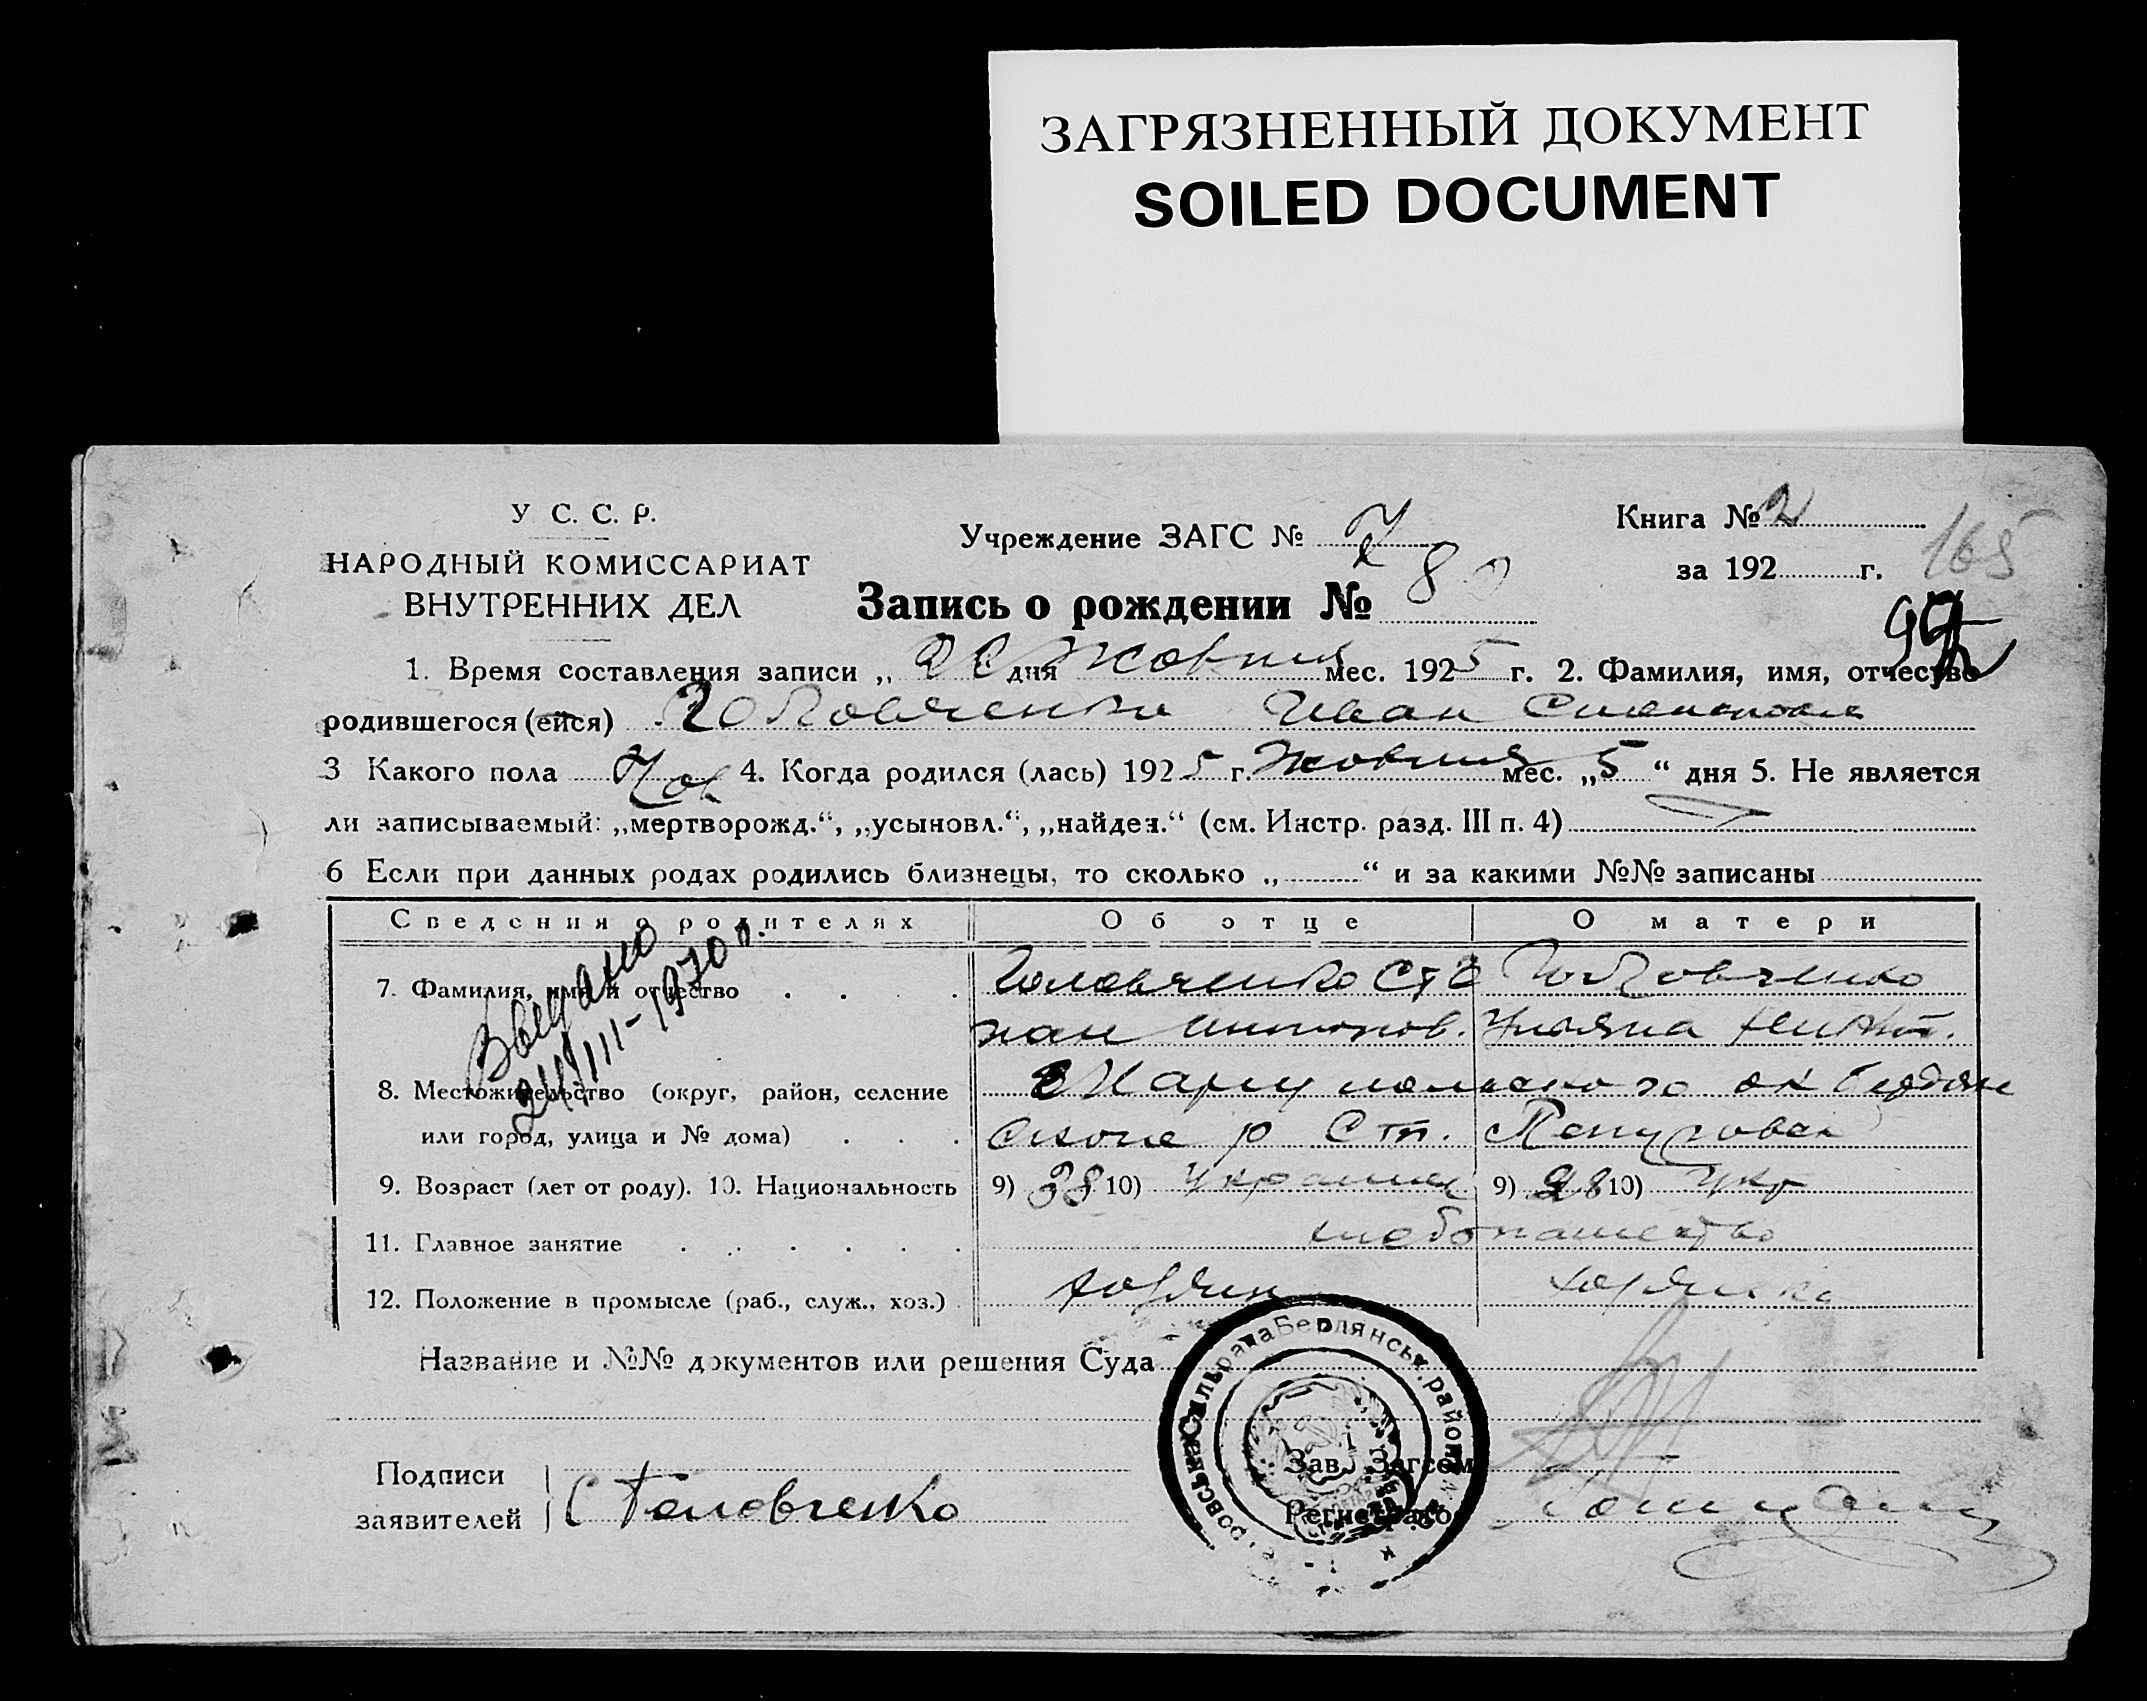 ЗАГРЯЗНЕННЫЙ ДОКУМЕНТ
SOILED DOCUMENT
У С. С. Р.
НАРОДНЫЙ КОМИССАРИАТ
ВНУТРЕННИХ ДЕЛ
Учреждение ЗАГС №
Книга № 2
за 192 г.
165
Запись о рождении № 80
1. Время составления записи „ дня Жовтня мес. 1925 г. 2. Фамилия, имя, отчество
родившегося (ейся) Головченко Иван Степанович
3 Какого пола Чол 4. Когда родился (лась) 1925 г. Жовтня мес. „5“ дня 5. Не является
ли записываемый: „мертворожд.“, „усыновл.“, „найден.“ (см. Инстр. разд. III п. 4)
6 Если при данных родах родились близнецы, то сколько „ “ и за какими №№ записаны
Сведения о родителях Об отце О матери
Выдано
24/III-1970 г.
7. Фамилия, имя и отчество Головченко Сте Головченко
пан Антонов. Ульяна
8. Местожительство (округ, район, селение Мариупольского ок Бердян
или город, улица и № дома) ского р Ст.
9. Возраст (лет от роду). 10. Национальность 9) 38 10) Украинец 9) 28 10) Укр
11. Главное занятие хлебопашество
12. Положение в промысле (раб., служ., хоз.) хозяин хозяйка
Название и №№ документов или решения Суда
Сільрада Бердянськ. район
Подписи
заявителей С Головченко
Зав. Загсом
Регистратор